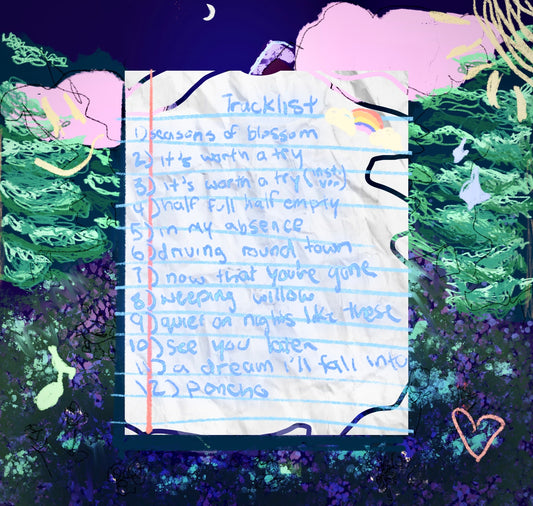 Tracklist
1) seasons of blossom
2) it's worth a try
3) it's worth a try (inst. ver.)
4) half full half empty
5) in my absence
6) driving round town
7) now that you're gone
8) weeping willow
9) quiet on nights like these
10) see you later
11) a dream i'll fall into
12) poncho